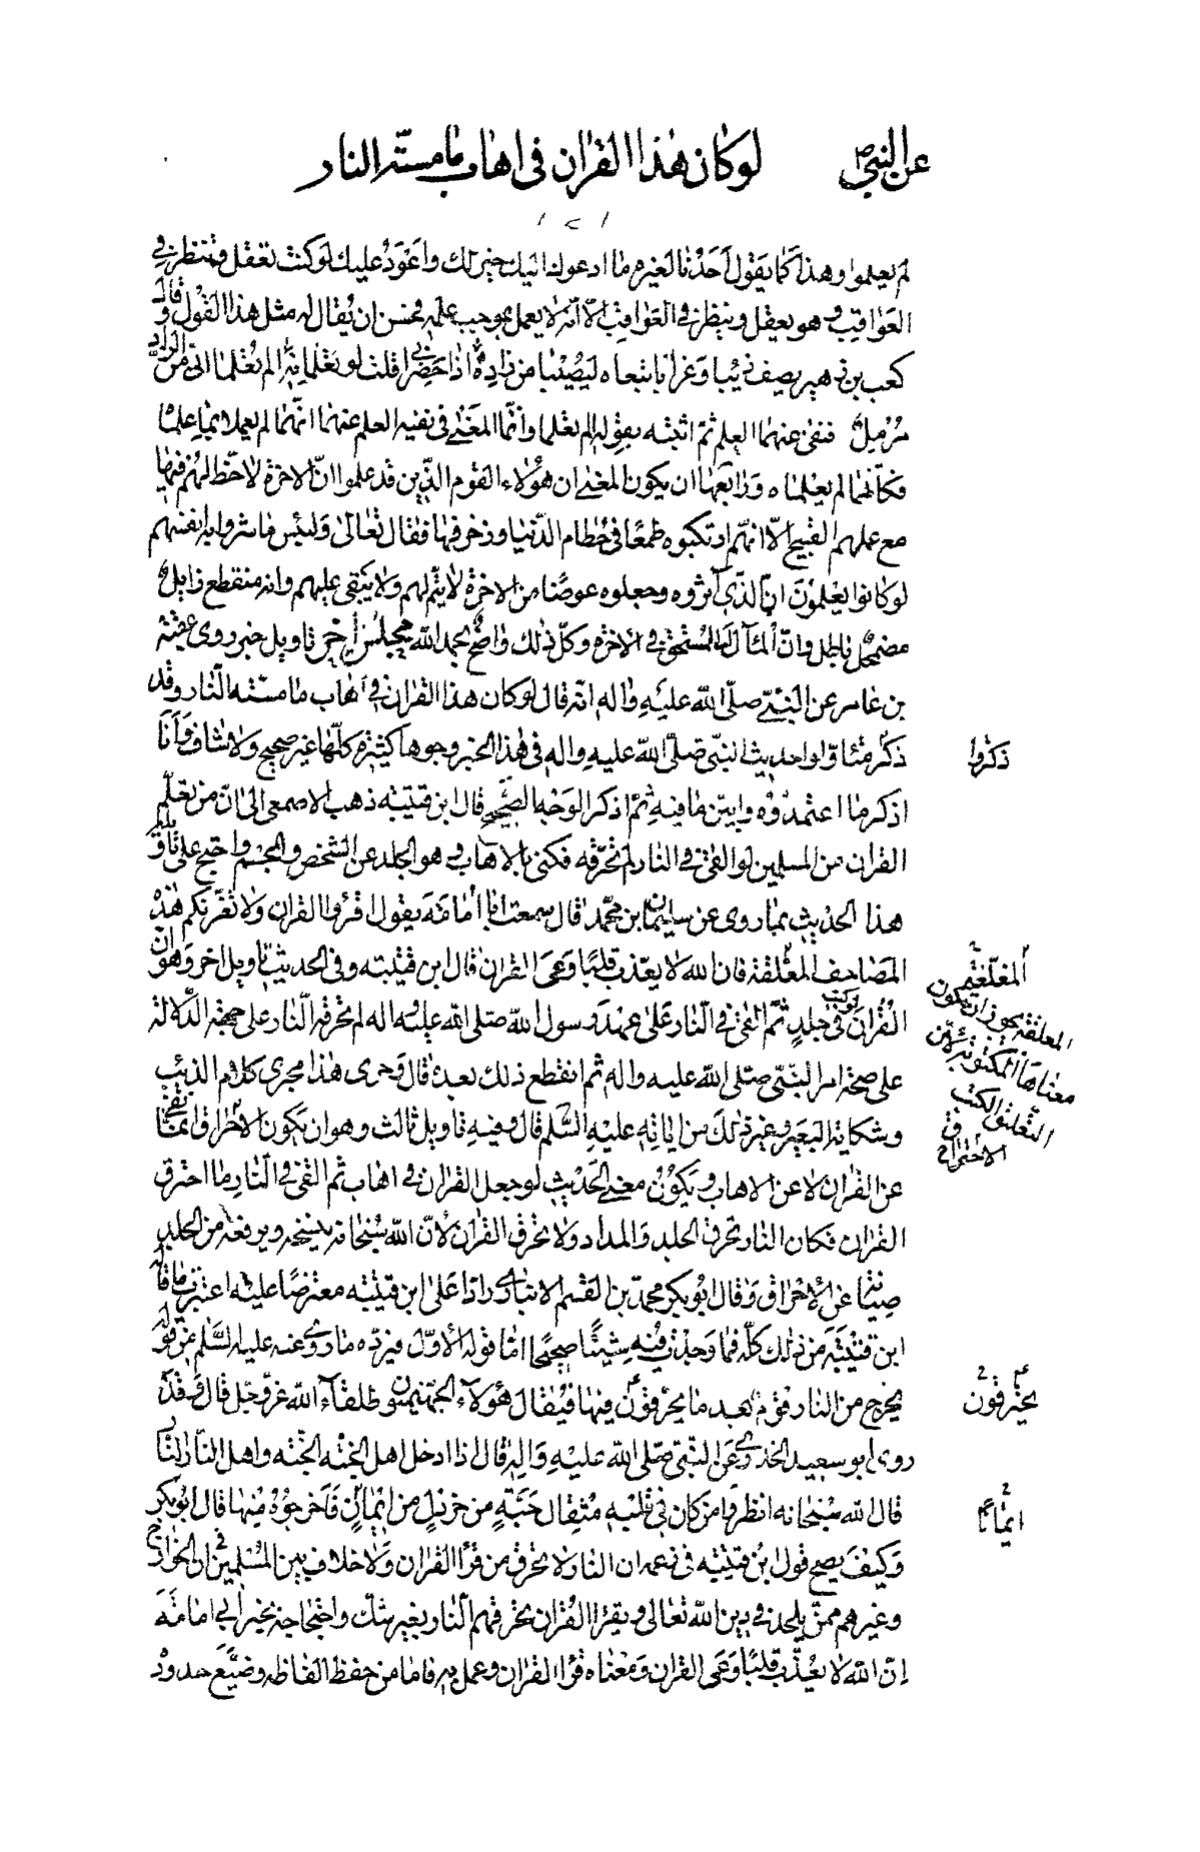 عن النبي ص لو كان هذا القران في اهاب ما مسته النار
١٧١
لم يعلموا وهذا كما يقول احدنا لغيره ما ادعوك اليه خير لك واعود عليك لو كنت تعقل وتنظر في
العواقب وهو يعقل وينظر في العواقب الا انه لا يعمل بموجب علمه فحسن ان يقال له مثل هذا القول وقال
كعب بن زهير يصف ذئبا وغرابا تبعاه ليصيبا من زاده اذا حضراني قلت لو تعلمانه الم تعلما اني من الزاد
مرمل فنفى عنهما العلم ثم اثبته بقوله الم تعلما وانما المعنى في نفيه العلم عنهما انهما لم يعملا بما علما
فكانهما لم يعلماه ورابعها ان يكون المعنى ان هؤلاء القوم الذين قد علموا ان الاخرة لا حظ لهم فيها
مع علمهم القبيح الا انهم ارتكبوه طمعا في حطام الدنيا وزخرفها فقال تعالى ولبئس ما شروا به انفسهم
لو كانوا يعلمون ان الذي آثروه وجعلوه عوضا من الاخرة لا يتم لهم ولا يبقى عليهم وانه منقطع زايل
مضمحل باطل وان المآل الى المستحق في الاخرة وكل ذلك واضح بحمد الله مجلس اخر تاويل خبر روى عقبة
بن عامر عن النبي صلى الله عليه واله انه قال لو كان هذا القران في اهاب ما مسته النار وقد
ذكر متاولوا حديث النبي صلى الله عليه واله في هذا الخبر وجوها كثيرة كلها غير صحيح ولا شاف وانا
ذكروا
اذكر ما اعتمدوه وابين ما فيه ثم اذكر الوجه الصحيح قال ابن قتيبة ذهب الاصمعي الى ان من تعلم
القران من المسلمين لو القي في النار لم تحرقه فكنى بالاهاب وهو الجلد عن الشخص والجسم واحتج على تاويل
هذا الحديث بما روى عن سليمان بن محمد قال سمعت ابا امامة يقول اقرؤا القران ولا تغرنكم هذه
المصاحف المعلقة فان الله لا يعذب قلبا وعى القران قال ابن قتيبة وفي الحديث تاويل اخر وهو ان
المعلقة
المعلقة يجوز ان تكون
معناها المكتوبة لان
التعليق الكتب
القران لو كتب في جلد ثم القي في النار على عهد رسول الله صلى الله عليه واله لم تحرقه النار على جهة الدلالة
على صحة امر النبي صلى الله عليه واله ثم انقطع ذلك بعده قال وجرى هذا مجرى كلام الذئب
وشكاية البعير وغير ذلك من اياته عليه السلم قال وفيه تاويل ثالث وهو ان يكون الاحراق انما نفي
الاحتراق
عن القران لا عن الاهاب ويكون معنى الحديث لو جعل القران في اهاب ثم القي في النار ما احترق
القران فكان النار تحرق الجلد والمداد ولا تحرق القران لان الله سبحانه ينسخه ويرفعه من الجلد
صيانة عن الاحراق وقال ابو بكر محمد بن القسم الانباري رادا على ابن قتيبة معترضا عليه اعتبرت ما قاله
ابن قتيبة من ذلك كله فما وجدت فيه شيئا صحيحا اما قوله الاول فيرده ما روى عنه عليه السلم من قوله
يخرج من النار قوم بعد ما يحرقون فيها فيقال هؤلاء الجهنميون طلقاء الله عز وجل قال وقد
يحترقون
روى ابو سعيد الخدري عن النبي صلى الله عليه واله قال اذا دخل اهل الجنة الجنة واهل النار النار
قال الله سبحانه انظروا من كان في قلبه مثقال حبة من خردل من ايمان فاخرجوه منها قال ابو بكر
ايمانا
وكيف يصح قول ابن قتيبة في زعمه ان النار لا تحرق من قرأ القران ولا خلاف بين المسلمين في ان الخوارج
وغيرهم ممن يلحد في دين الله تعالى ويقرا القران تحرقهم النار بغير شك واحتجاجه بخبر ابي امامة
ان الله لا يعذب قلبا وعى القران ومعناه قرا القران وعمل به فاما من حفظ الفاظه وضيع حدوده